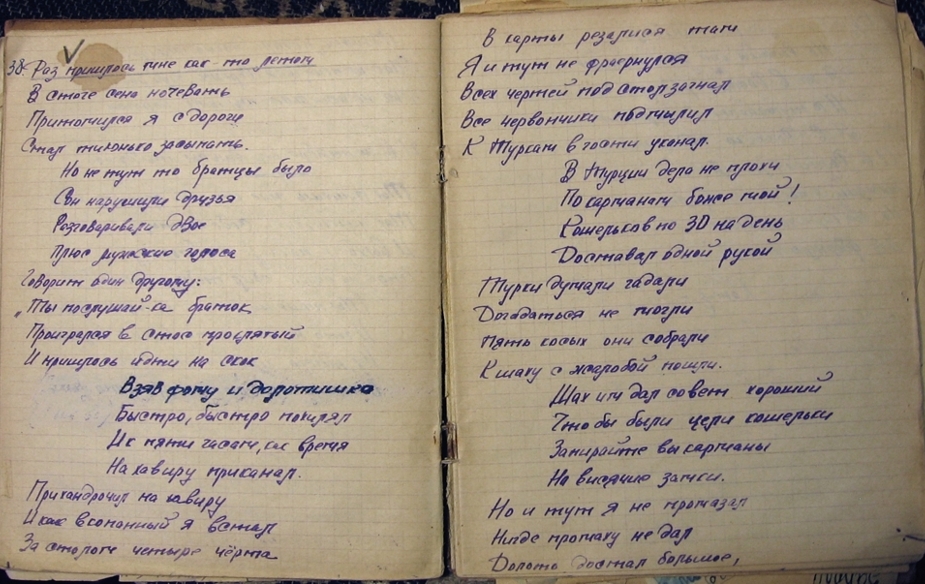 38. Раз пришлось мне как-то летом
В стоге сена ночевать
Притомился я с дороги
Стал тихонько засыпать.
Но не тут то братцы было
Сон нарушили друзья
Разговаривали двое
Плюс мужские голоса
Говорит один другому:
"Ты послушай-ка браток
Проигрался в стос проклятый
И пришлось идти на скок
Взяв фому и долотишко
Быстро, быстро похилял
И к пяти часам, как время
На хавиру приканал.
Прихандрочил на хавиру
И как вкопанный я встал
За столом четыре чёрта
В карты резалися там
Я и тут не фраернулся
Всех чертей под стол загнал
Все червончики помылил
К Туркам в гости уканал.
В Турции дела не плохи
По карманам боже мой!
Кошельков по 30 на день
Доставал одной рукой
Турки думали гадали
Догадаться не могли
Пять косых они собрали
К шаху с жалобой пошли.
Шах им дал совет хороший
Что бы были цели кошельки
Запирайте вы карманы
На висячие замки.
Но и тут я не промазал
Нигде промаху не дал
Долото достал большое,